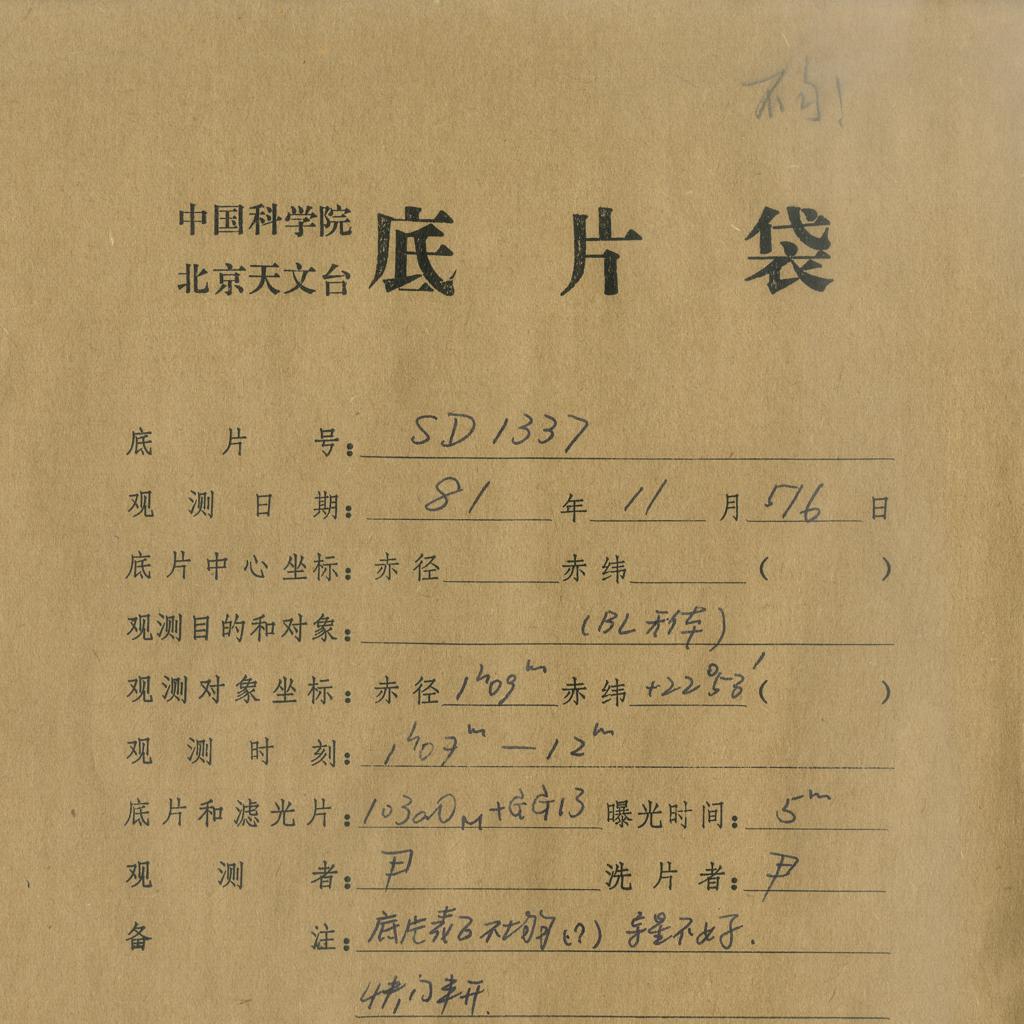 不匀!
中国科学院
北京天文台
底片袋
底片号: SD 1337
观测日期: 81 年 11 月 5/6 日
底片中心坐标: 赤径 赤纬 ( )
观测目的和对象: (BL 天体)
观测对象坐标: 赤径 1ʰ09ᵐ 赤纬 +22°53′ ( )
观测时刻: 1ʰ07ᵐ — 12ᵐ
底片和滤光片: 103aO + GG13 曝光时间: 5ᵐ
观测者: 尹 洗片者: 尹
备注: 底片表面不均匀(?) 质量不好.
快门未开.